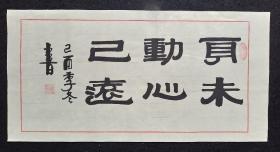 身未
動心
已遠
己酉季冬